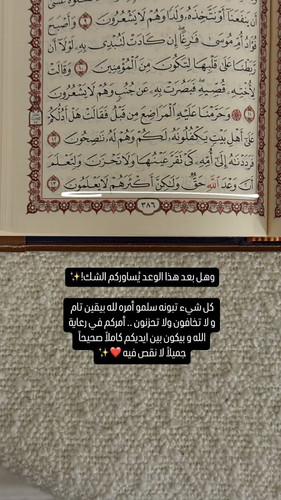 أَن يَنفَعَنَآ أَوْ نَتَّخِذَهُۥ وَلَدًا وَهُمْ لَا يَشْعُرُونَ ٩ وَأَصْبَحَ
فُؤَادُ أُمِّ مُوسَىٰ فَٰرِغًا إِن كَادَتْ لَتُبْدِى بِهِۦ لَوْلَآ أَن
رَّبَطْنَا عَلَىٰ قَلْبِهَا لِتَكُونَ مِنَ ٱلْمُؤْمِنِينَ ١٠ وَقَالَتْ
لِأُخْتِهِۦ قُصِّيهِ فَبَصُرَتْ بِهِۦ عَن جُنُبٍ وَهُمْ لَا يَشْعُرُونَ
١١ وَحَرَّمْنَا عَلَيْهِ ٱلْمَرَاضِعَ مِن قَبْلُ فَقَالَتْ هَلْ أَدُلُّكُمْ
عَلَىٰٓ أَهْلِ بَيْتٍ يَكْفُلُونَهُۥ لَكُمْ وَهُمْ لَهُۥ نَٰصِحُونَ ١٢
فَرَدَدْنَٰهُ إِلَىٰٓ أُمِّهِۦ كَىْ تَقَرَّ عَيْنُهَا وَلَا تَحْزَنَ وَلِتَعْلَمَ
أَنَّ وَعْدَ ٱللَّهِ حَقٌّ وَلَٰكِنَّ أَكْثَرَهُمْ لَا يَعْلَمُونَ ١٣
٣٨٦
وهل بعد هذا الوعد يُساوركم الشك!✨
كل شيء تبونه سلمو أمره لله بيقين تام
و لا تخافون ولا تحزنون .. أمركم في رعاية
الله و بيكون بين ايديكم كاملاً صحيحاً
جميلاً لا نقص فيه ❤️✨